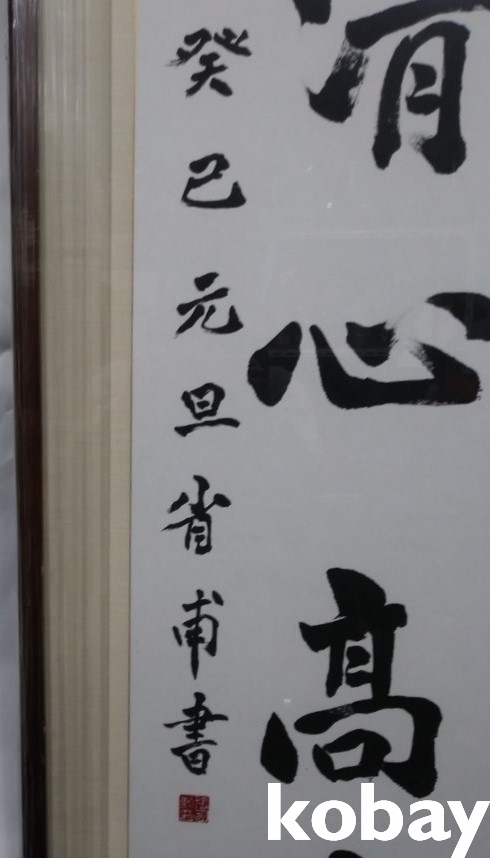 清心高
癸巳元旦省甫書
kobay